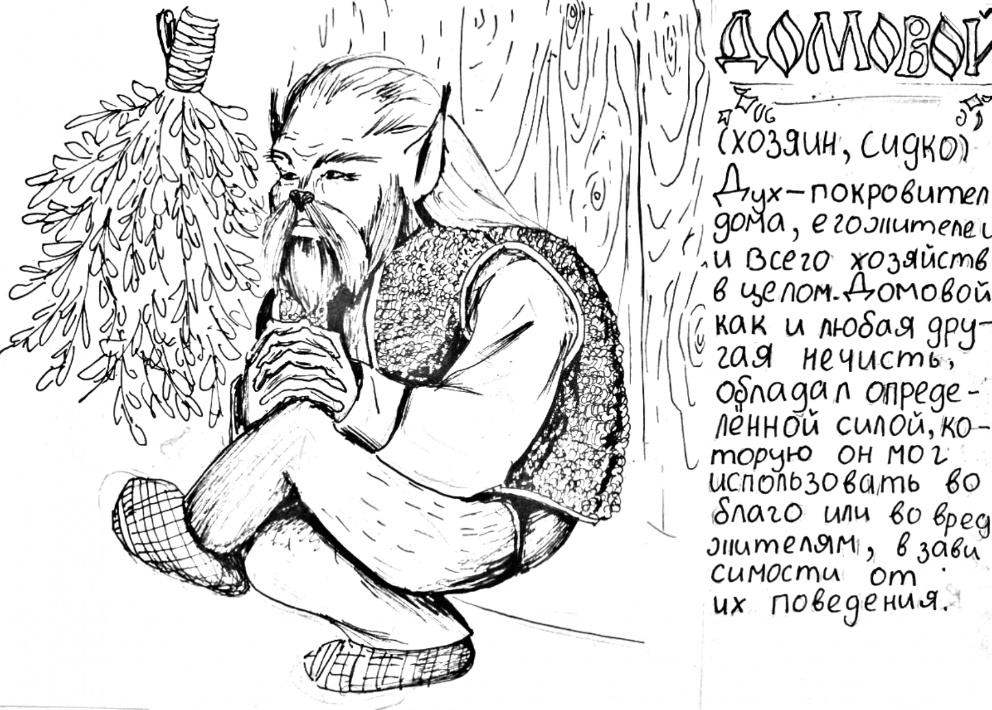 ДОМОВОЙ
(ХОЗЯИН, СИДКО)
Дух-покровител
дома, его жителей
и всего хозяйств
в целом. Домовой
как и любая дру-
гая нечисть,
обладал опреде-
лённой силой, ко-
торую он мог
использовать во
благо или во вред
жителям, в зави
симости от
их поведения.